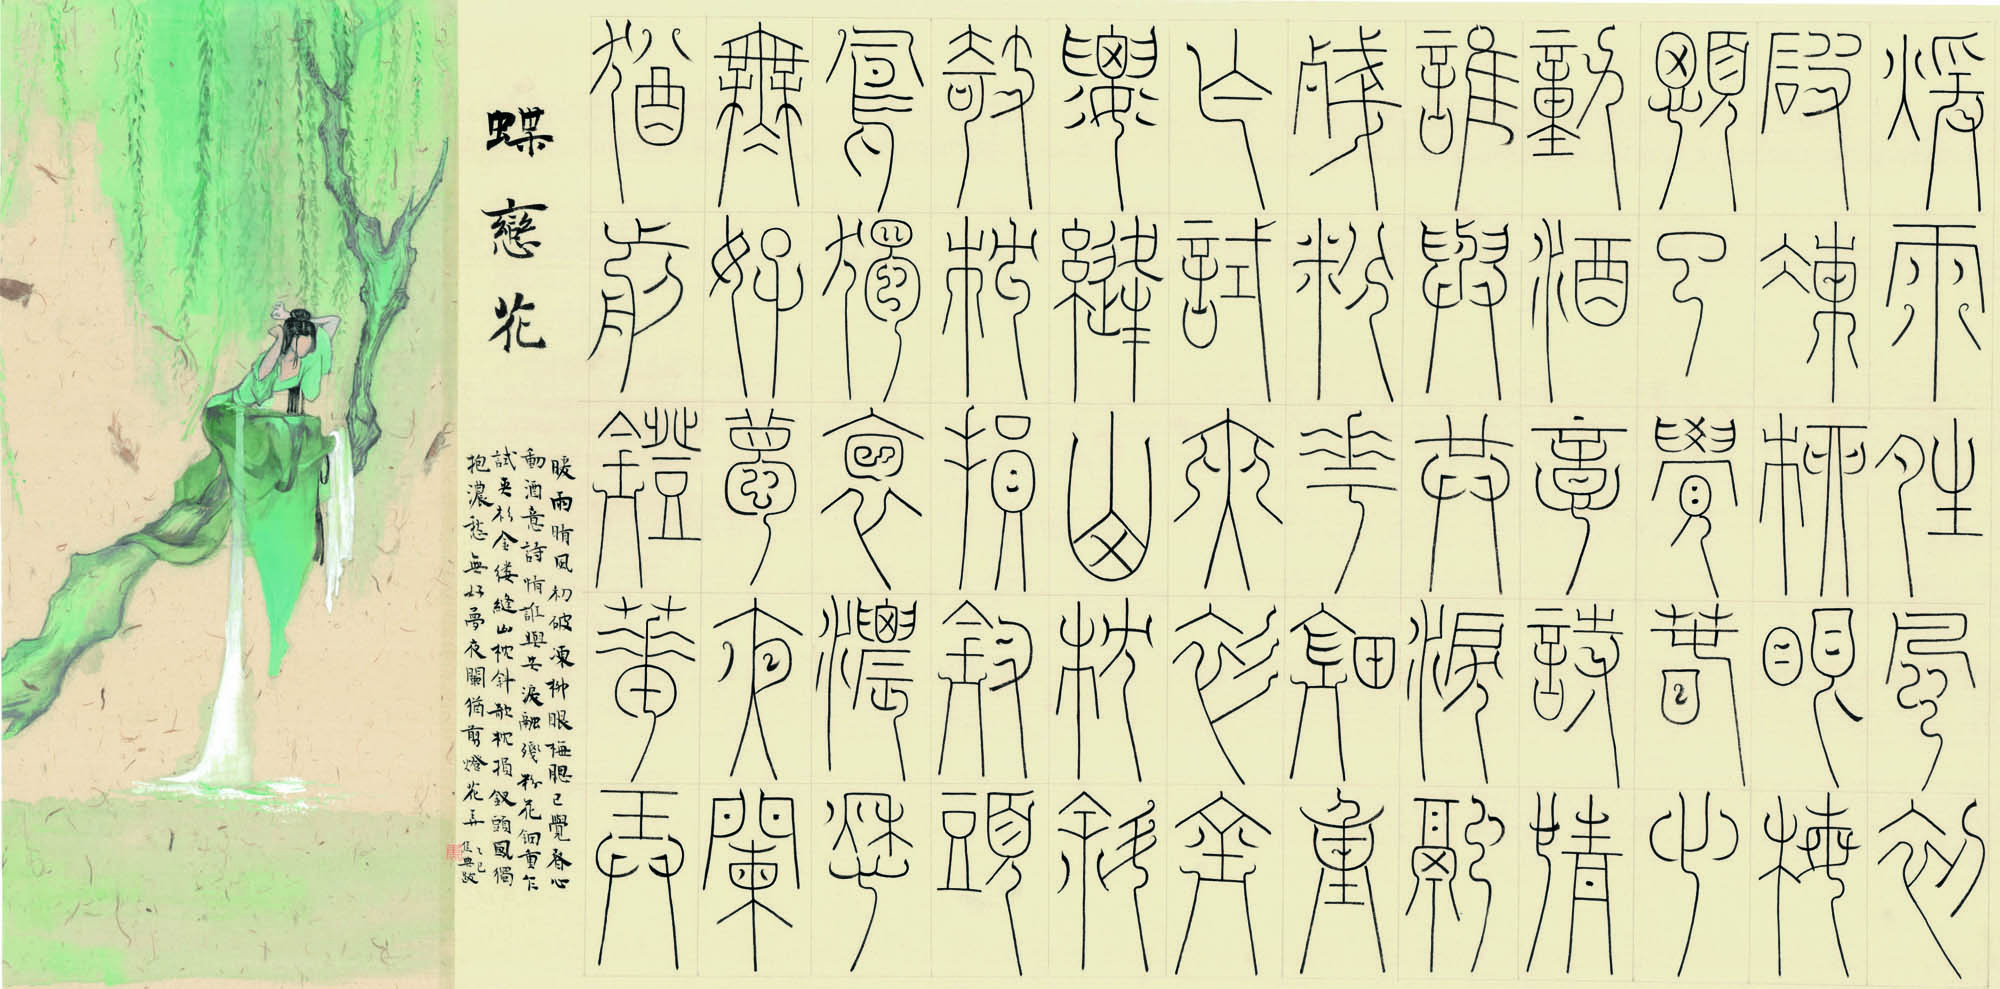 暖雨晴風初
破凍柳眼梅
顋已覺春心
動酒意詩情
誰與共淚融
殘粉花鈿重
乍試夾衫金
縷縫山枕斜
敧枕損釵頭
鳳獨抱濃愁
無好夢夜闌
猶剪燈花弄
蝶戀花
暖雨晴風初破凍柳眼梅腮已覺春心
動酒意詩情誰與共淚融殘粉花鈿重乍
試夾衫金縷縫山枕斜欹枕損釵頭鳳獨
抱濃愁無好夢夜闌猶剪燈花弄 乙巳